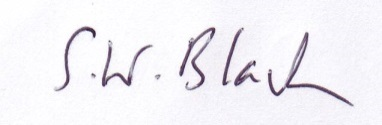 S.W. Black